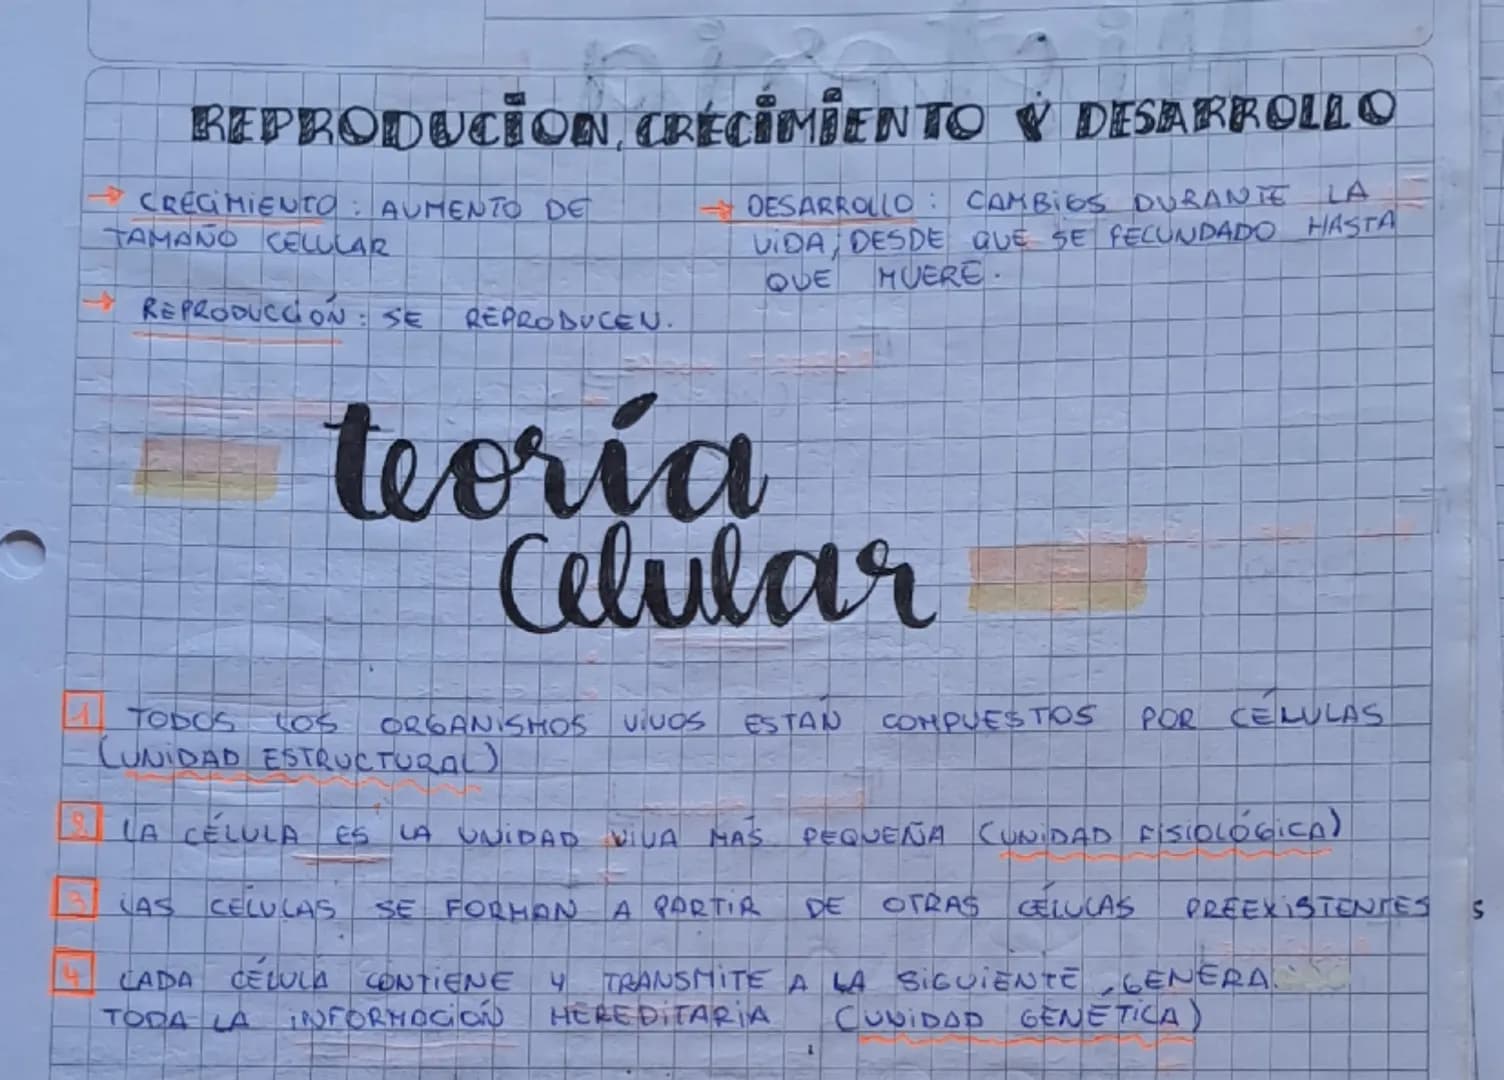 REPRODUCIÓN, CRECIMIENTO Y DESARROLLO
→ CRECIMIENTO: AUMENTO DE
TAMAÑO CELULAR
→ REPRODUCCIÓN: SE REPRODUCEN.
→ DESARROLLO: CAMBIOS DURANTE LA
VIDA, DESDE QUE SE FECUNDADO HASTA
QUE MUERE.
teoría
Celular
1 TODOS LOS ORGANISMOS VIVOS ESTÁN COMPUESTOS POR CÉLULAS
(UNIDAD ESTRUCTURAL)
2 LA CÉLULA ES LA UNIDAD VIVA MÁS PEQUEÑA (UNIDAD FISIOLÓGICA)
3 LAS CÉLULAS SE FORMAN A PARTIR DE OTRAS CÉLULAS PREEXISTENTES
4 CADA CÉLULA CONTIENE Y TRANSMITE A LA SIGUIENTE GENERA.
TODA LA INFORMACIÓN HEREDITARIA (UNIDAD GENÉTICA)